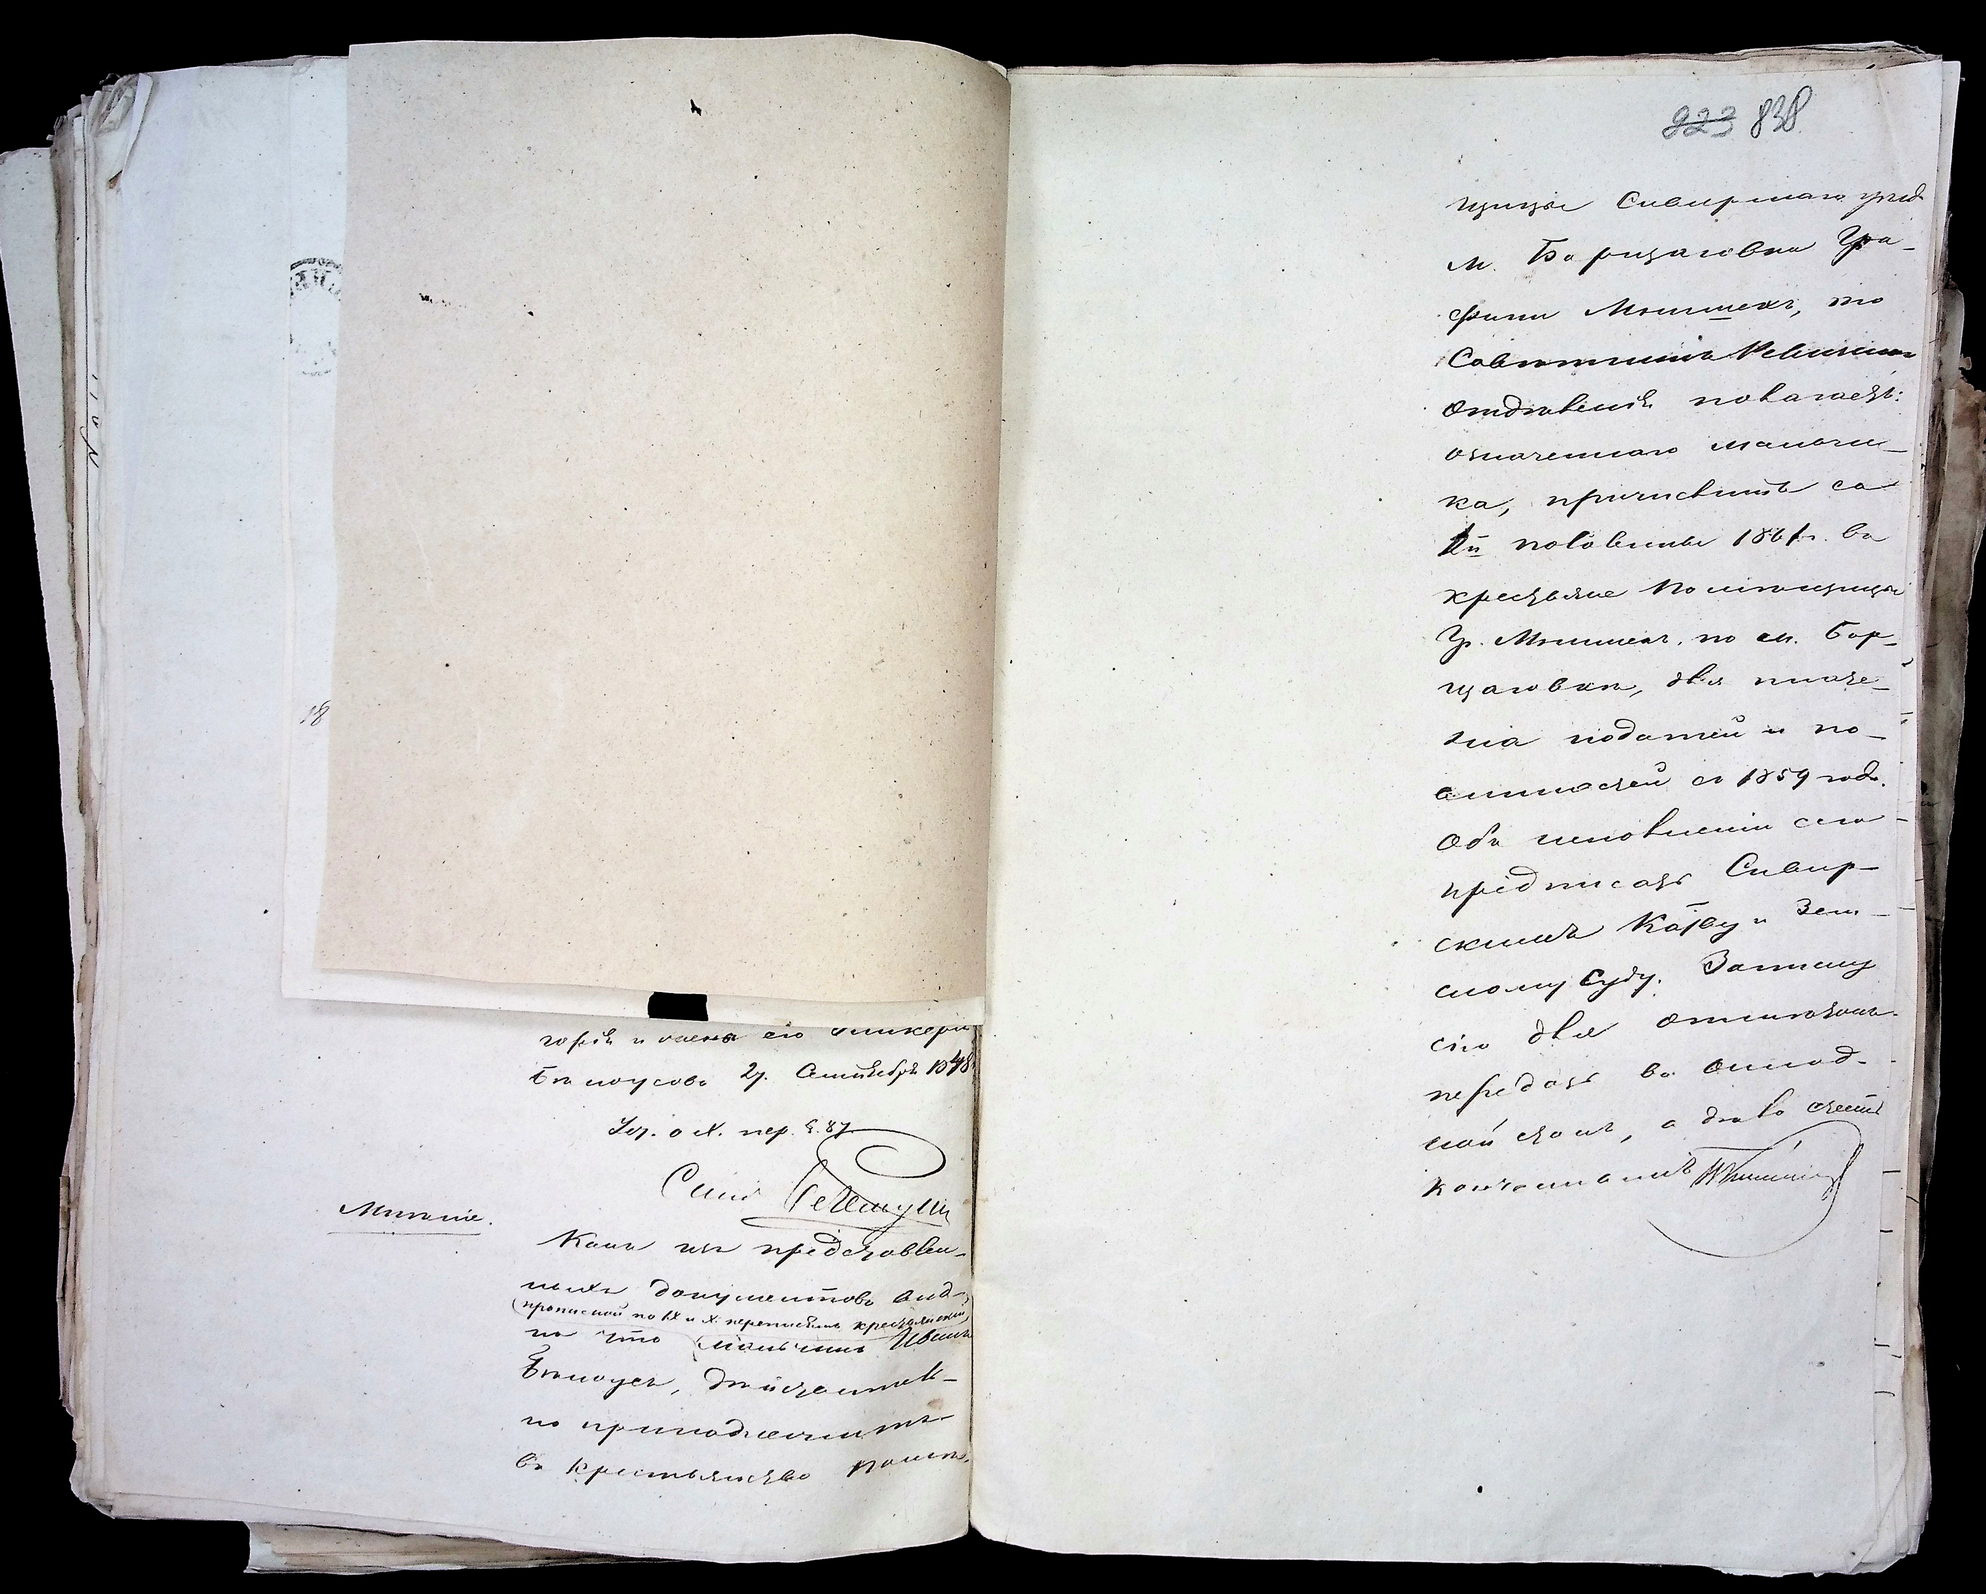 18
горій и жена его Гликерія
Бѣлоусовъ 27 Сентября 1848
Уст. о X. пер. §. 87
Мнѣніе.
Какъ изъ представлен-
ныхъ документовъ вид-
(прописной по IX и X переписямъ крестьянскій)
но что мальчикъ Иванъ
Бѣлоусъ, дѣйствитель-
но принадлежитъ
въ крестьянство помѣ-
223 838
щицы Сквирскаго уѣзд
м. Борщаговки Гра-
фини Мнишекъ, то
Совѣтникъ Ревизскаго
Отдѣленія полагаетъ:
означеннаго мальчи-
ка, причислить съ
половины 1861 г. въ
крестьяне Помѣщицы
Гр. Мнишекъ, по м. Бор-
щаговкѣ, для плате-
жа податей и по-
винностей съ 1859 года.
Объ исполненіи сего
предписать Сквир-
скимъ Каз-ву и Зем-
скому Суду. Записку
сію для
передать въ Оклад-
ной столъ, а дѣло считать
конченнымъ